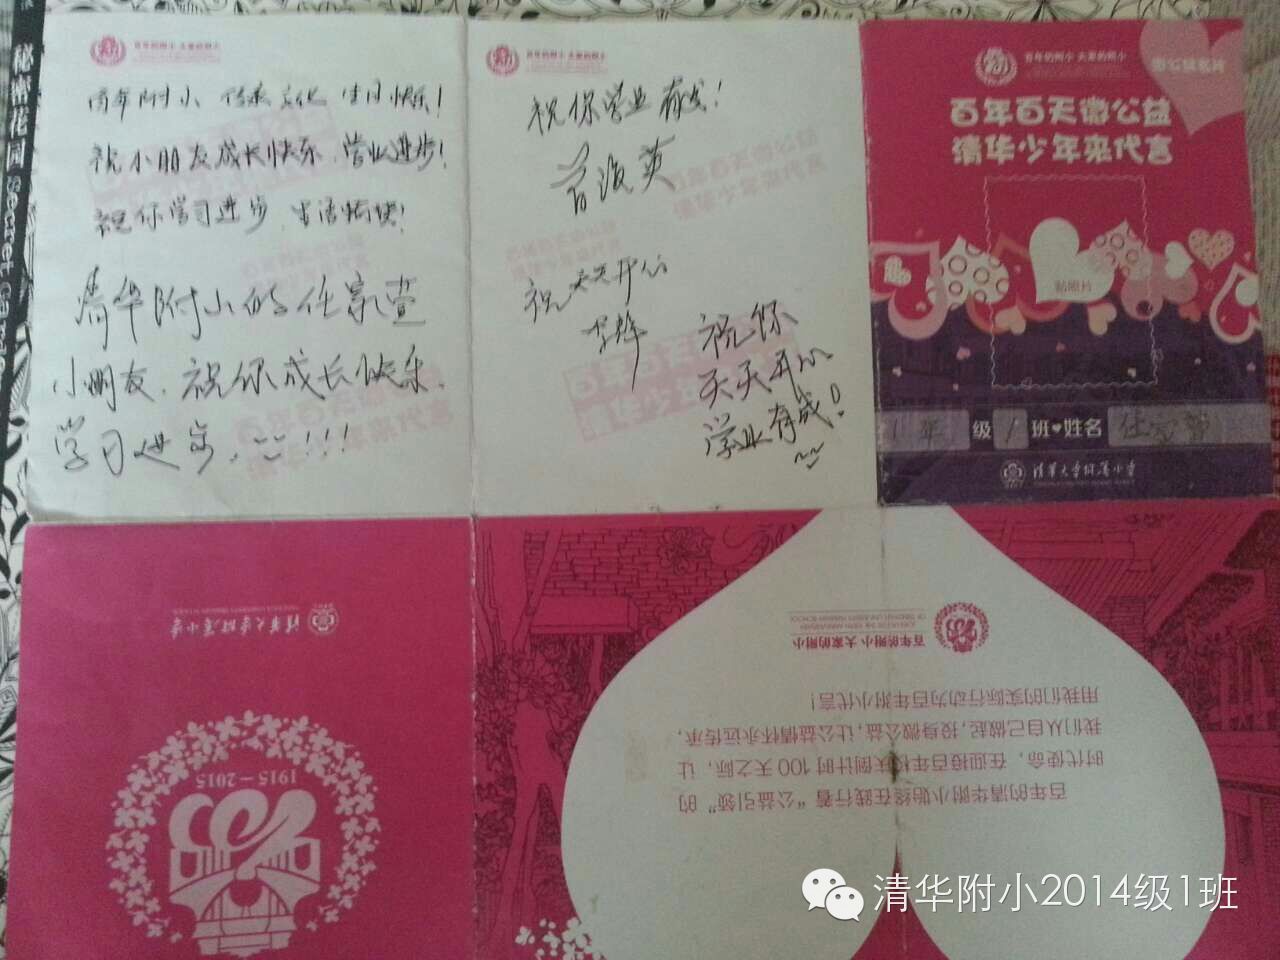 秘密花园 Secret Gar
百年的附小 大家的附小
百年附小 传承文化 生日快乐!
祝小朋友成长快乐，学业进步!
祝你学习进步 生活愉快!
清华附小的任家萱
小朋友，祝你成长快乐，
学习进步。!!!
百年的附小 大家的附小
祝你学业有成!
祝天天开心
祝你
天天开心
学业有成!
百年的附小 大家的附小
百年百天微公益
清华少年来代言
贴照片
1年 级 1 班 姓名 任家萱
清华大学附属小学
清华大学附属小学
1915-2015
百年的附小 大家的附小
百年的清华附小始终在践行着“公益引领”的
时代使命，在迎接百年校庆倒计时100天之际，让
我们从自己做起，投身微公益，让公益情怀永远传承，
用我们的实际行动为百年附小代言！
清华附小2014级1班